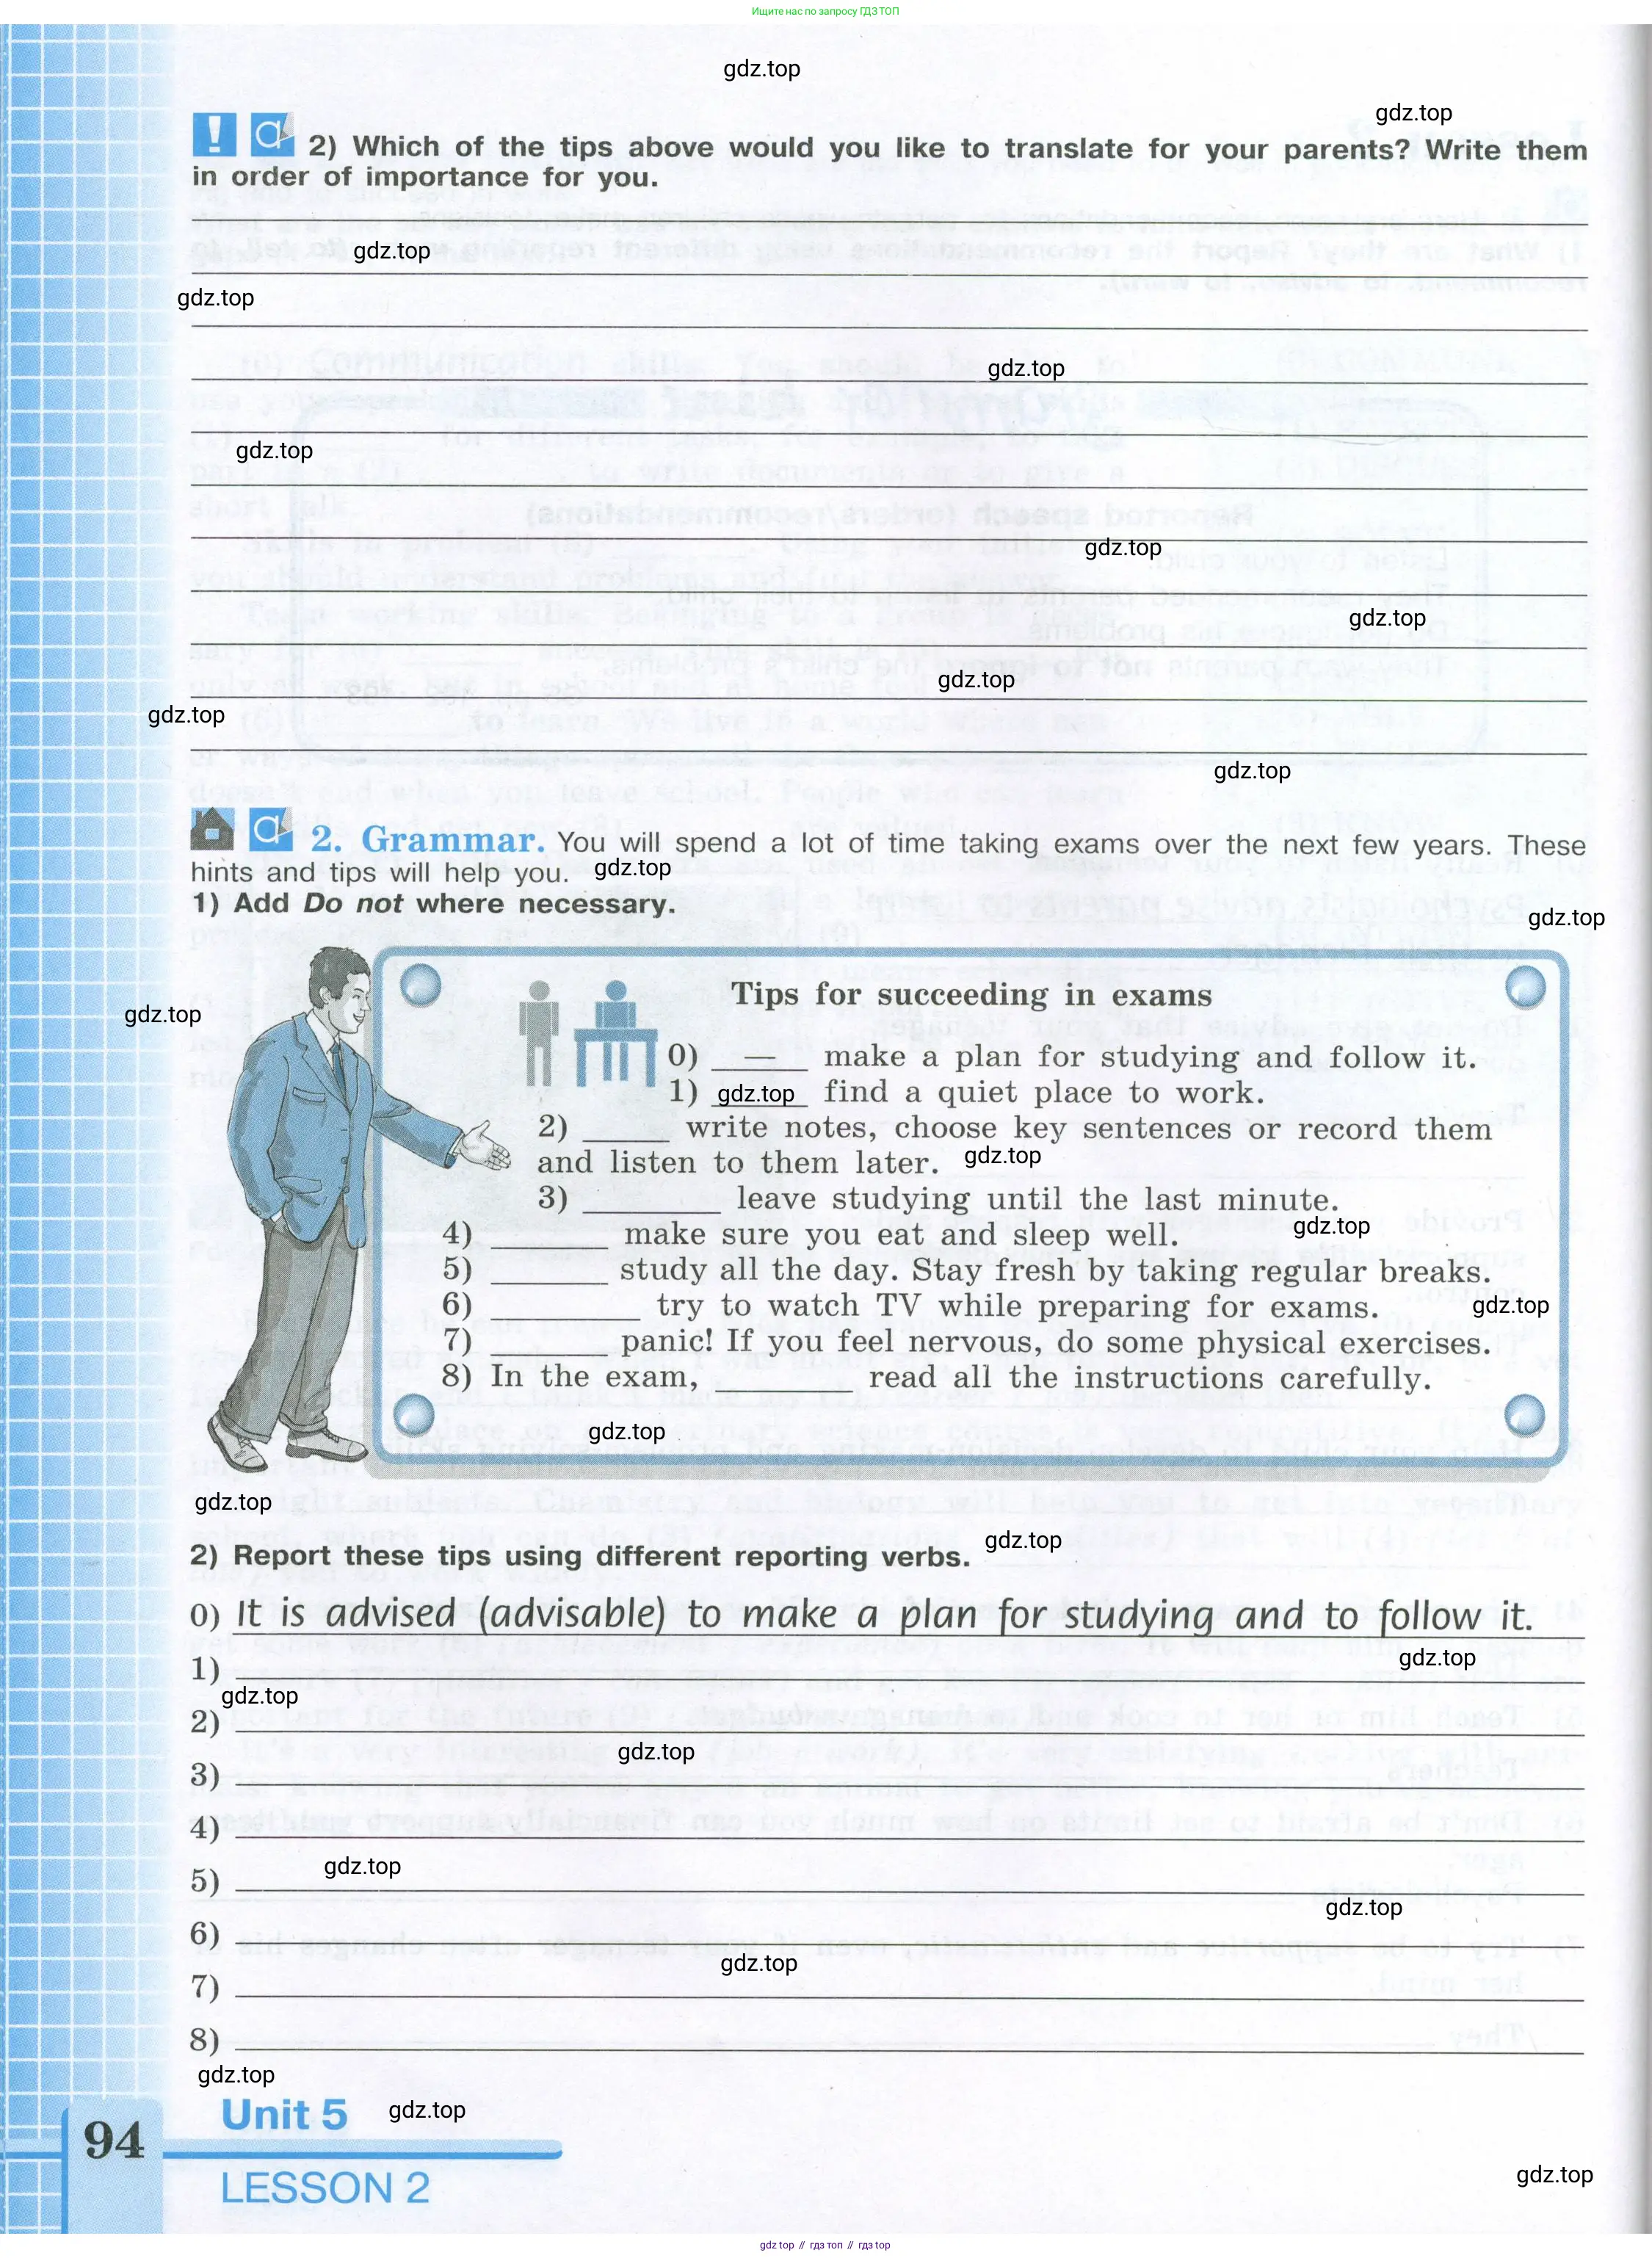 Ищите нас по запросу ГДЗ ТОП
gdz.top
gdz.top
! a 2) Which of the tips above would you like to translate for your parents? Write them
in order of importance for you.
gdz.top
gdz.top
gdz.top
gdz.top
gdz.top
gdz.top
gdz.top
gdz.top
gdz.top
a 2. Grammar. You will spend a lot of time taking exams over the next few years. These
hints and tips will help you. gdz.top
1) Add Do not where necessary.
gdz.top
Tips for succeeding in exams
gdz.top
0) — make a plan for studying and follow it.
1) gdz.top find a quiet place to work.
2) ____ write notes, choose key sentences or record them
and listen to them later. gdz.top
3) ____ leave studying until the last minute.
gdz.top
4) ____ make sure you eat and sleep well.
5) ____ study all the day. Stay fresh by taking regular breaks.
6) ____ try to watch TV while preparing for exams. gdz.top
7) ____ panic! If you feel nervous, do some physical exercises.
8) In the exam, ____ read all the instructions carefully.
gdz.top
gdz.top
gdz.top
2) Report these tips using different reporting verbs.
0) It is advised (advisable) to make a plan for studying and to follow it.
gdz.top
1)
gdz.top
2)
gdz.top
3)
4)
gdz.top
5)
gdz.top
6)
gdz.top
7)
8)
gdz.top
Unit 5 gdz.top
94
LESSON 2
gdz.top
gdz top // гдз топ // гдз top